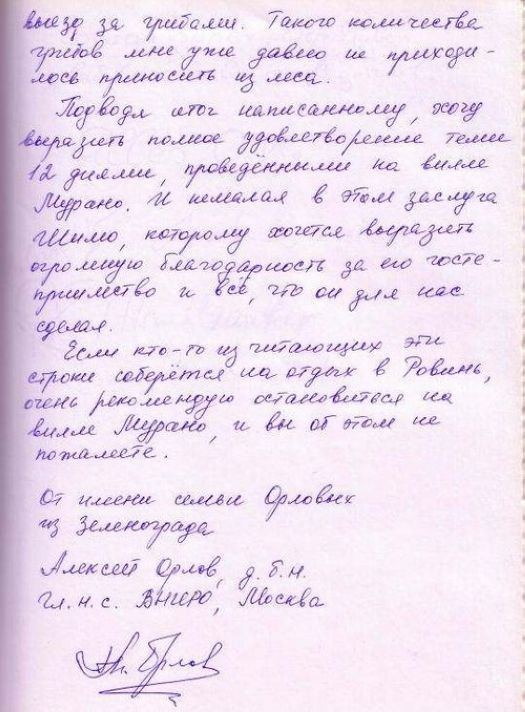 выезд за грибами. Такого количества
грибов мне уже давно не приходи-
лось приносить из леса.
Подводя итог написанному, хочу
выразить полное удовлетворение теми
12 днями, проведёнными на вилле
Мурано. И немалая в этом заслуга
Шимо, которому хочется выразить
огромную благодарность за его госте-
приимство и всё, что он для нас
сделал.
Если кто-то из читающих эти
строки соберётся на отдых в Ровинь,
очень рекомендую остановиться на
вилле Мурано, и вы об этом не
пожалеете.
От имени семьи Орловых
из Зеленограда
Алексей Орлов, д.б.н.
гл.н.с. ВНИРО, Москва
Орлов